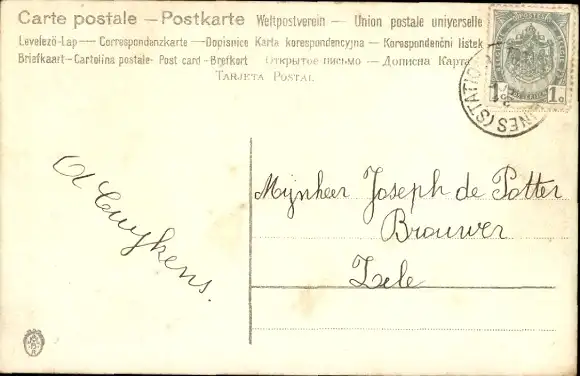 Carte postale — Postkarte Weltpostverein — Union postale universelle
Levelező-Lap — Correspondenzkarte — Dopisnice Karta korespondencyjna — Korespondenční listek
Briefkaart — Cartolina postale - Post card - Brefkort Открытое письмо — Дописна Карта
TARJETA POSTAL
1 1c
INES (STATION
A Cuykens.
Mijnheer Joseph de Potter
Brouwer
Zele